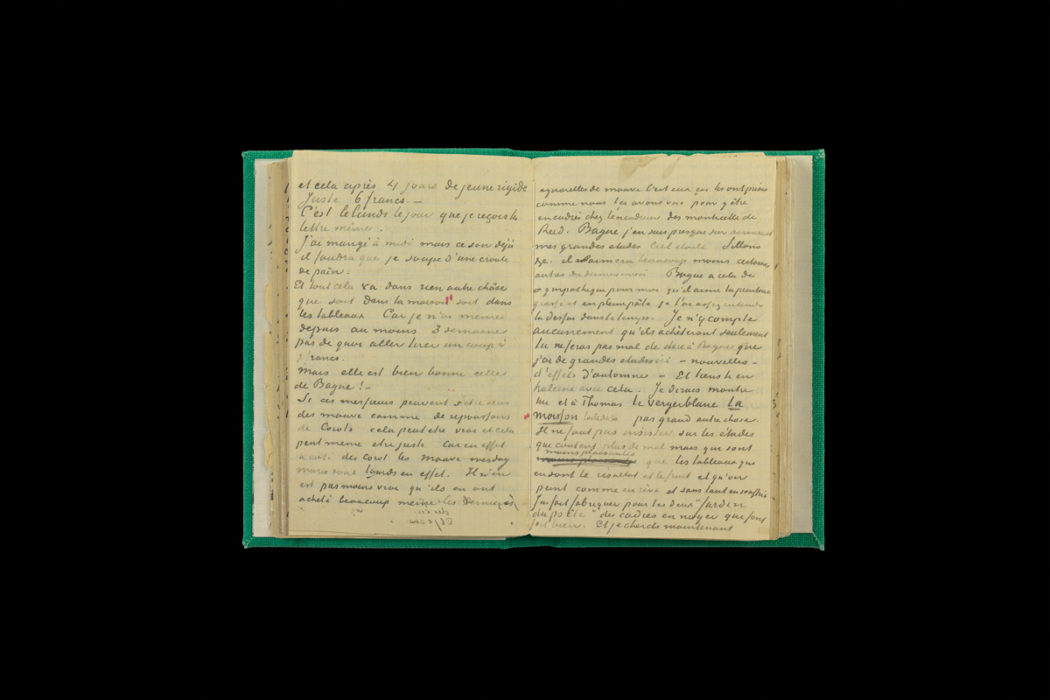 et cela après 4 jours de jeune rigide
Juste 6 francs. —
C'est lelundi le jour que je reçois ta
lettre même.
J'ai mangé à midi mais ce soir déjà
il faudra que je soupe d'une croute
de pain.
Et tout cela va dans rien autre chôse
que soit dans la maison soit dans
les tableaux Car je n'ai même
depuis au moins 3 semaines
pas de quoi aller tirer un coup à
3 francs.
Mais elle est bien bonne celle
de Bague! —
Si ces messieurs peuvent
des mauve comme de repoussoirs
de Corots cela peut etre vrai et cela
peut meme etre juste Car en effet
a coté des Corot les Mauve mesdag
maris sont lourds en effet. Il n'en
est pas moins vrai qu'ils en ont
acheté beaucoup meme les dernières
aquarelles de mauve C'est eux qui les ont prises
comme nous les avons vus pour y être
encadrés chez l'encadreur des monticelli de
Reid. Bague j'en suis presque sur aimerait
mes grandes etudes Ciel etoilé Sillons
&c. il aimera beaucoup moins certaines
autres du dernier envoi Bague a cela de
sympathique pour moi qu'il aime la peinture
grasse et en pleine pâte je l'ai assez entendu
la dessus dans le temps. Je n'y compte
aucunement qu'ils achèteront seulement
tu ne feras pas mal de dire à Bague que
j'ai de grandes etudes ici — nouvelles —
d'effets d'automne — Et tiens le en
haleine avec cela. Je dirais montre
lui et à Thomas le verger blanc La
moisson pas grand autre chose.
Il ne faut pas insister sur les études
que coutent plus de mal mais qui sont
moins plaisantes que les tableaux qui
en sont le résultat et le fruit et qu'on
peint comme en rêve et sans tant en souffrir
J'ai fait fabriquer pour les deux "Jardin
du poëte" des cadres en noyer qui font
fort bien. Et je cherche maintenant